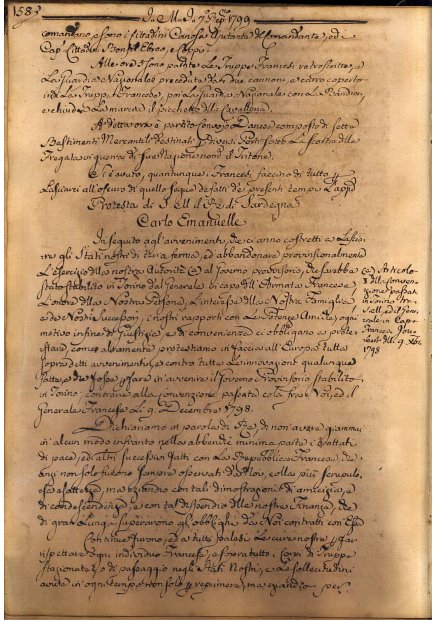 1583
1799
comandano, e sono i Cittadini Canosa Ajutante del Comandante, ed i
Cap.ⁿⁱ Cittadini
Alle ore 5 sono partite le Truppe Francesi retroscritte, e
La Guardia Nazionale preceduta da due cannoni, e carro coperto
indi La Truppa Francese, poi La Guardia Nazionale con La Bandiera,
e chiude La marcia il picchetto della Cavalleria.
A detta ora è partito Convojo Danese composto di sette
Bastimenti Mercantili destinati p diversi Porti sotto La scorta della
Fregata di guerra di sua Nazione nom.ᵗᵃ il Tritone.
quantunque i Francesi faccino di tutto p
Lasciarci all'oscuro di quello segue de fatti de presenti tempi
Protesta di S. M. il Re di Sardegna
Carlo Emanuelle
In seguito agl'avvenimenti, che ci anno costretti a Lascia-
re gli Stati nostri di terra ferma, ed abbandonare provisionalmente
L'Esercizio della nostra Autorità (a) al Governo provisorio, che sarebbe
stato stabilito in Torino dal Generale in capo dell'Armata Francese
L'onore della Nostra Persona, L'interesse della Nostra Famiglia
e de Nostri Successori, i nostri rapporti con Le Potenze Amiche, ogni
motivo infine di Giustizia, e di convenienza ci obbligano a prote-
stare, come altamente protestiamo in faccia all'Europa tutta
sopra detti avvenimenti, e contro tutte Le innovazioni qualunque
fatte, che fosse p fare in avvenire il Governo Provisorio stabilito
in Torino contrarie alla convenzione passata tra Noi, ed il
Generale Francese Li 9. Decembre 1798.
Dichiariamo in parola di Re, di non avere giammai
in alcun modo infranto nella abbenchè minima parte i Trattati
di pace, ed altri successivi fatti con La Repubblica Francese, che
anzi non solo furono sempre osservati da Noi, colla più scrupulo-
sa esattezza, ma eziandio con tali dimostrazioni di amicizia, e
di condescendenza, e con tal dispendio delle nostre Finanze, che
di gran Lunga superavono gli obblighi da Noi contratti con Essa
Continue furono, ed a tutti palesi Le cure nostre p far
rispettare ogni individuo Francese, e sopra tutto i Corpi di Truppa
stazionata, o di passaggio negli Stati Nostri, e Le sollecitudini
avute in ogni tempo non solo p reprimere, ma eziandio per
(a) Articolo
della Conven-
zione passata
in Torino tra
S. M. ed il Gene-
rale in Cap.
Francese Jou-
bert Li 9. Xbre
1798